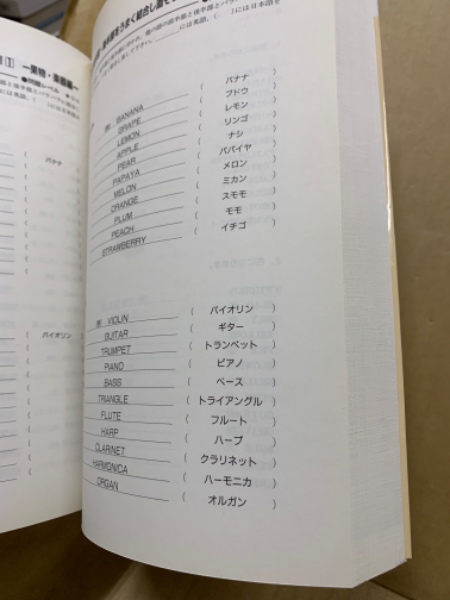 [1] ―果物・楽器編―
●問題レベル
（ バナナ
（ バイオリン
後半部をうまく結合し語を
には英語、（　）には日本語を
例 BANANA （ バナナ
GRAPE （ ブドウ
LEMON （ レモン
APPLE （ リンゴ
PEAR （ ナシ
PAPAYA （ パパイヤ
MELON （ メロン
ORANGE （ ミカン
PLUM （ スモモ
PEACH （ モモ
STRAWBERRY （ イチゴ
例 VIOLIN （ バイオリン
GUITAR （ ギター
TRUMPET （ トランペット
PIANO （ ピアノ
BASS （ ベース
TRIANGLE （ トライアングル
FLUTE （ フルート
HARP （ ハープ
CLARINET （ クラリネット
HARMONICA （ ハーモニカ
ORGAN （ オルガン